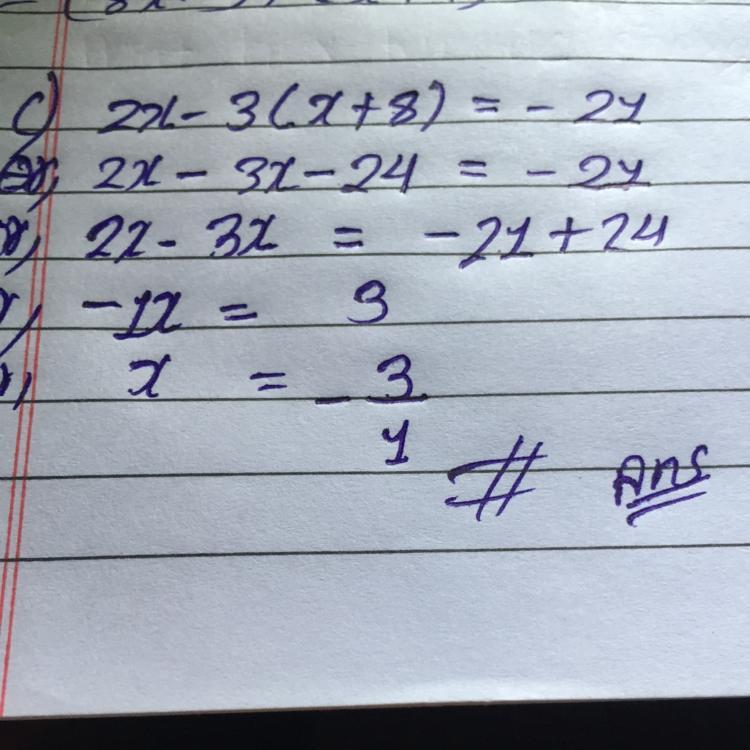 c) 2x - 3(x + 8) = - 21
or, 2x - 3x - 24 = - 21
or, 2x - 3x = - 21 + 24
or, - 1x = 3
or, x = - 3/1
# Ans